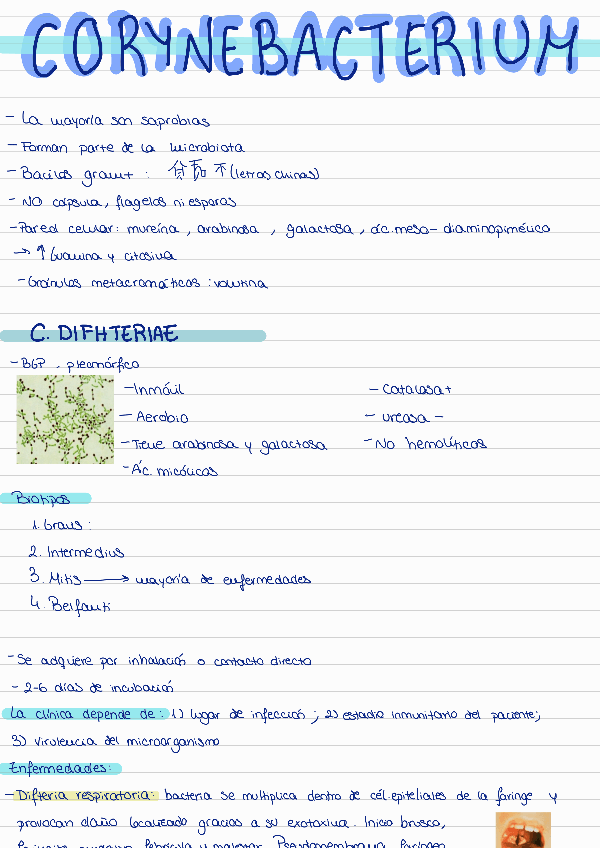 CORYNEBACTERIUM
- La mayoría son saprobias
- Forman parte de la microbiota
- Bacilos gram+ : (letras chinas)
- NO cápsula, flagelos ni esporas
- Pared celular: mureína, arabinosa, galactosa, ác. meso-diaminopimélico
→ ↑ Guanina y citosina
- Gránulos metacromáticos: volutina
C. DIFHTERIAE
- BGP, pleomórfico
- Inmóvil - Catalasa +
- Aerobio - ureasa -
- Tiene arabinosa y galactosa - No hemolíticos
- Ác. micólicos
Biotipos
1. Gravis:
2. Intermedius
3. Mitis → mayoría de enfermedades
4. Belfanti
- Se adquiere por inhalación o contacto directo
- 2-6 días de incubación
La clínica depende de: 1) lugar de infección; 2) estadio inmunitario del paciente;
3) virulencia del microorganismo
Enfermedades:
- Difteria respiratoria: bacteria se multiplica dentro de cél. epiteliales de la faringe y
provocan daño localizado gracias a su exotoxina. Inicio brusco,
febrícula y malestar. Pseudomembrana